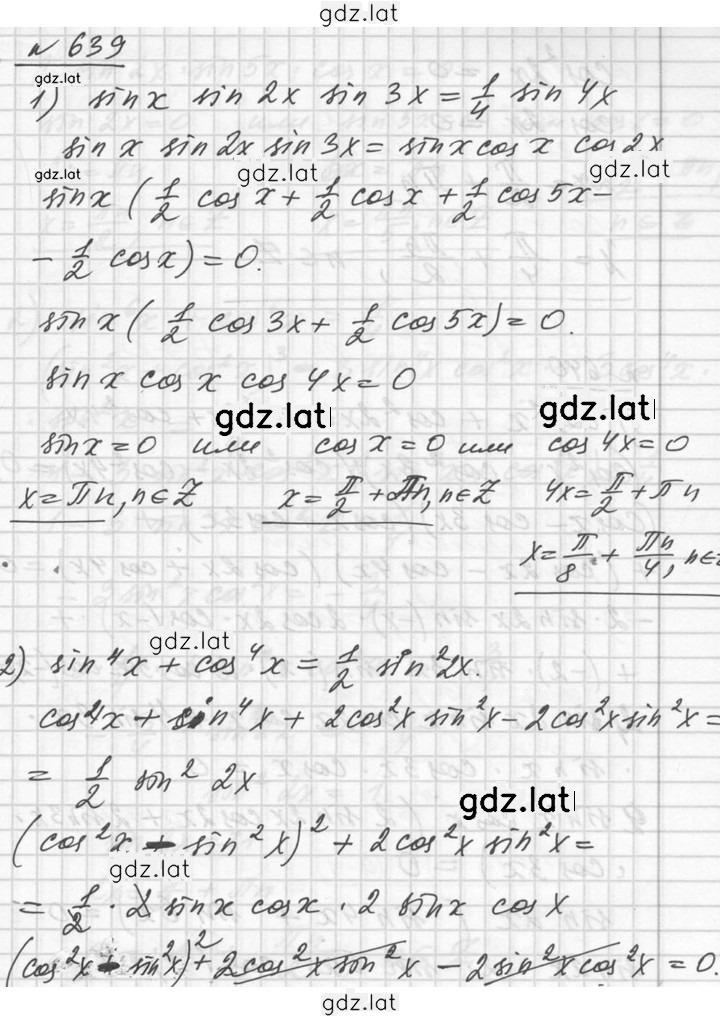 gdz.lat
№ 639
gdz.lat
1) sin x sin 2x sin 3x = 1/4 sin 4x
sin x sin 2x sin 3x = sin x cos x cos 2x
gdz.lat gdz.lat gdz.lat
sin x (1/2 cos x + 1/2 cos x + 1/2 cos 5x –
– 1/2 cos x) = 0.
sin x (1/2 cos 3x + 1/2 cos 5x) = 0.
sin x cos x cos 4x = 0
gdz.lat gdz.lat
sin x = 0 или cos x = 0 или cos 4x = 0
x = πn, n ∈ Z x = π/2 + πn, n ∈ Z 4x = π/2 + πn
x = π/8 + πn/4, n ∈ Z
gdz.lat
2) sin⁴x + cos⁴x = 1/2 sin²2x.
cos⁴x + sin⁴x + 2cos²x sin²x – 2cos²x sin²x =
= 1/2 sin² 2x
gdz.lat
(cos²x – sin²x)² + 2cos²x sin²x =
gdz.lat
= 1/2 · 2 sin x cos x · 2 sin x cos x
(cos²x – sin²x)² + 2cos²x sin²x – 2sin²x cos²x = 0.
gdz.lat